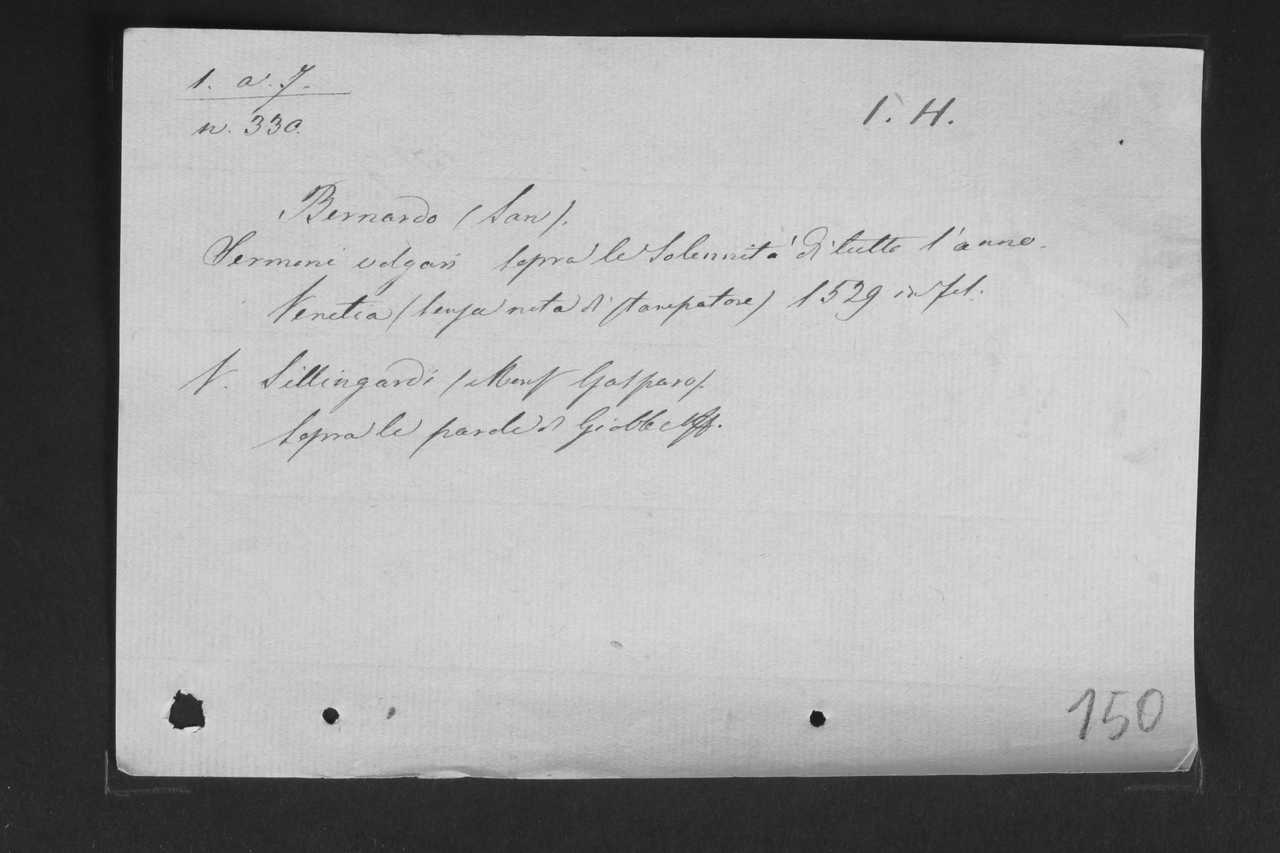 1. a. 7.
n. 330.
1. H.
Bernardo (San).
Sermoni volgari sopra le Solennità di tutto l'anno.
Venetia (senza nota di stampatore) 1529 in fol.
V. Sillingardi (Monsr Gasparo).
sopra le parole di Giobbe
150